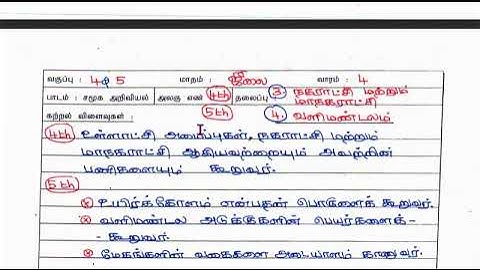 வகுப்பு : 4 & 5 மாதம் : ஜூலை வாரம் : 4
பாடம் : சமூக அறிவியல் அலகு எண் 4th தலைப்பு 3. நகராட்சி மற்றும் மாநகராட்சி
கற்றல் விளைவுகள் : 5th 4. வளிமண்டலம்
4th உள்ளாட்சி அமைப்புகள், நகராட்சி மற்றும்
மாநகராட்சி ஆகியவற்றையும் அவற்றின்
பணிகளையும் கூறுவர்.
5th
உயிர்க்கோளம் என்பதன் பொருளைக் கூறுவர்.
வளிமண்டல அடுக்குகளின் பெயர்களைக்
- கூறுவர்.
மேகங்களின் வகைகளை அடையாளம் காணுவர்.